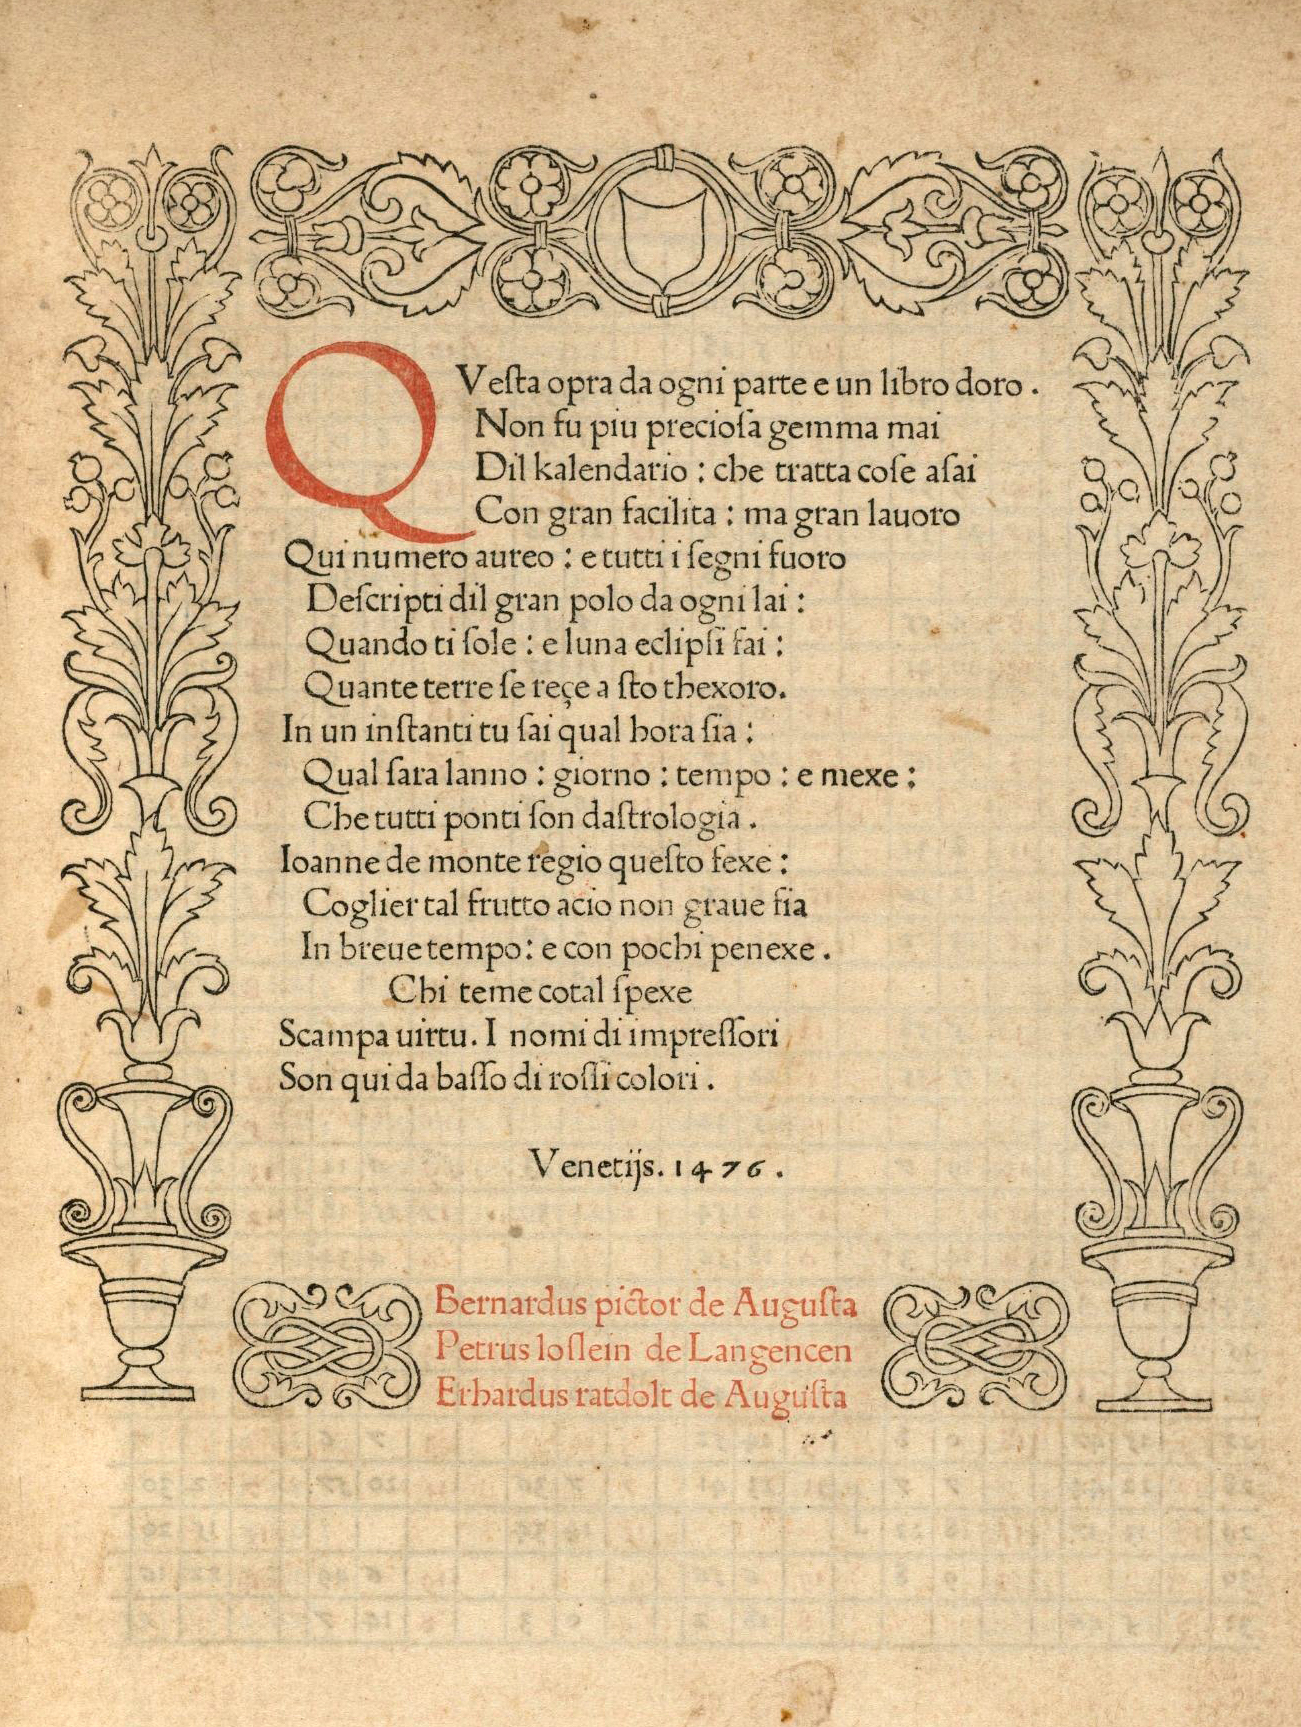 QVeſta opra da ogni parte e un libro doro .
Non fu piu precioſa gemma mai
Dil kalendario : che tratta coſe aſai
Con gran facilita : ma gran lauoro
Qui numero aureo : e tutti i ſegni fuoro
Deſcripti dil gran polo da ogni lai :
Quando ti ſole : e luna eclipſi fai :
Quante terre ſe reçe a ſto thexoro.
In un inſtanti tu ſai qual hora ſia :
Qual ſara lanno : giorno : tempo : e mexe :
Che tutti ponti ſon daſtrologia .
Ioanne de monte regio queſto fexe :
Coglier tal frutto acio non graue fia
In breue tempo : e con pochi penexe .
Chi teme cotal ſpexe
Scampa uirtu. I nomi di impreſſori
Son qui da baſſo di roſſi colori .
Venetijs. 1476 .
Bernardus pictor de Auguſta
Petrus loſlein de Langencen
Erhardus ratdolt de Auguſta